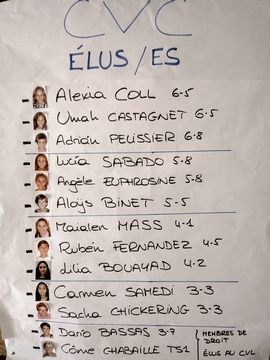 CVC
ÉLUS/ES
- Alexia COLL 6-5
- Umah CASTAGNET 6-5
- Adrián PELISSIER 6-8
- Lucía SABADO 5-8
- Angèle EUPHROSINE 5-8
- Aloÿs BINET 5-5
- Maialen MASS 4-1
- Rubén FERNANDEZ 4-5
- Lilia BOUAYAD 4-2
- Carmen SAMEDI 3-3
- Sacha CHICKERING 3-3
- Darío BASSAS 3-7
- Côme CHABAILLE TS1
MEMBRES DE DROIT
ÉLUS AU CVL